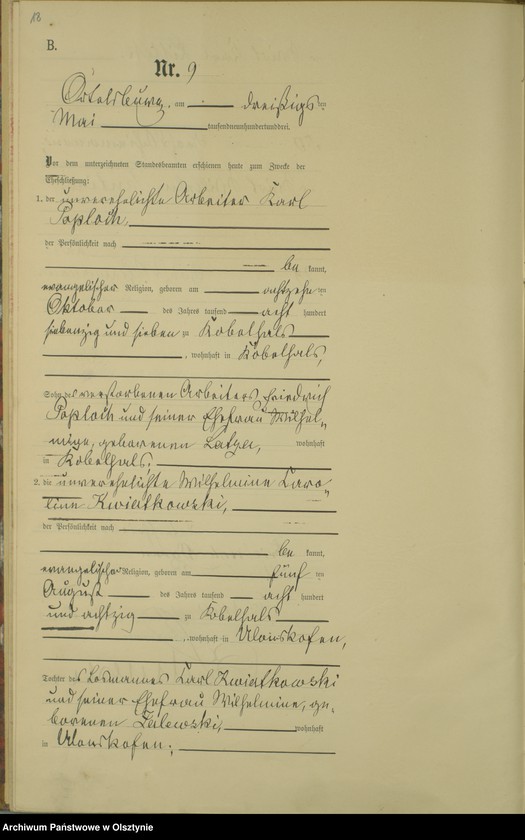 18
B.
Nr. 9
Ortelsburg, am dreißigsten
Mai tausendneunhundertunddrei.
Vor dem unterzeichneten Standesbeamten erschienen heute zum Zwecke der
Eheschließung:
1. der unverehelichte Arbeiter Karl
Poploih,
der Persönlichkeit nach
be kannt,
evangelischer Religion, geboren am achtzehn ten
Oktober des Jahres tausend acht hundert
siebenzig und sieben zu Kobelhals
, wohnhaft in Kobelhals,
Sohn des verstorbenen Arbeiters Friedrich
Poploih und seiner Ehefrau Wilhel-
mine, geborenen Latza, wohnhaft
in Kobelhals;
2. die unverehelichte Wilhelmine Caro-
line Kwiatkowski,
der Persönlichkeit nach
be kannt,
evangelischer Religion, geboren am fünf ten
August des Jahres tausend acht hundert
und achtzig zu Kobelhals
, wohnhaft in Ulonskofen,
Tochter des Losmannes Carl Kwiatkowski
und seiner Ehefrau Wilhelmine, ge-
borenen wohnhaft
in Ulonskofen;
Archiwum Państwowe w Olsztynie